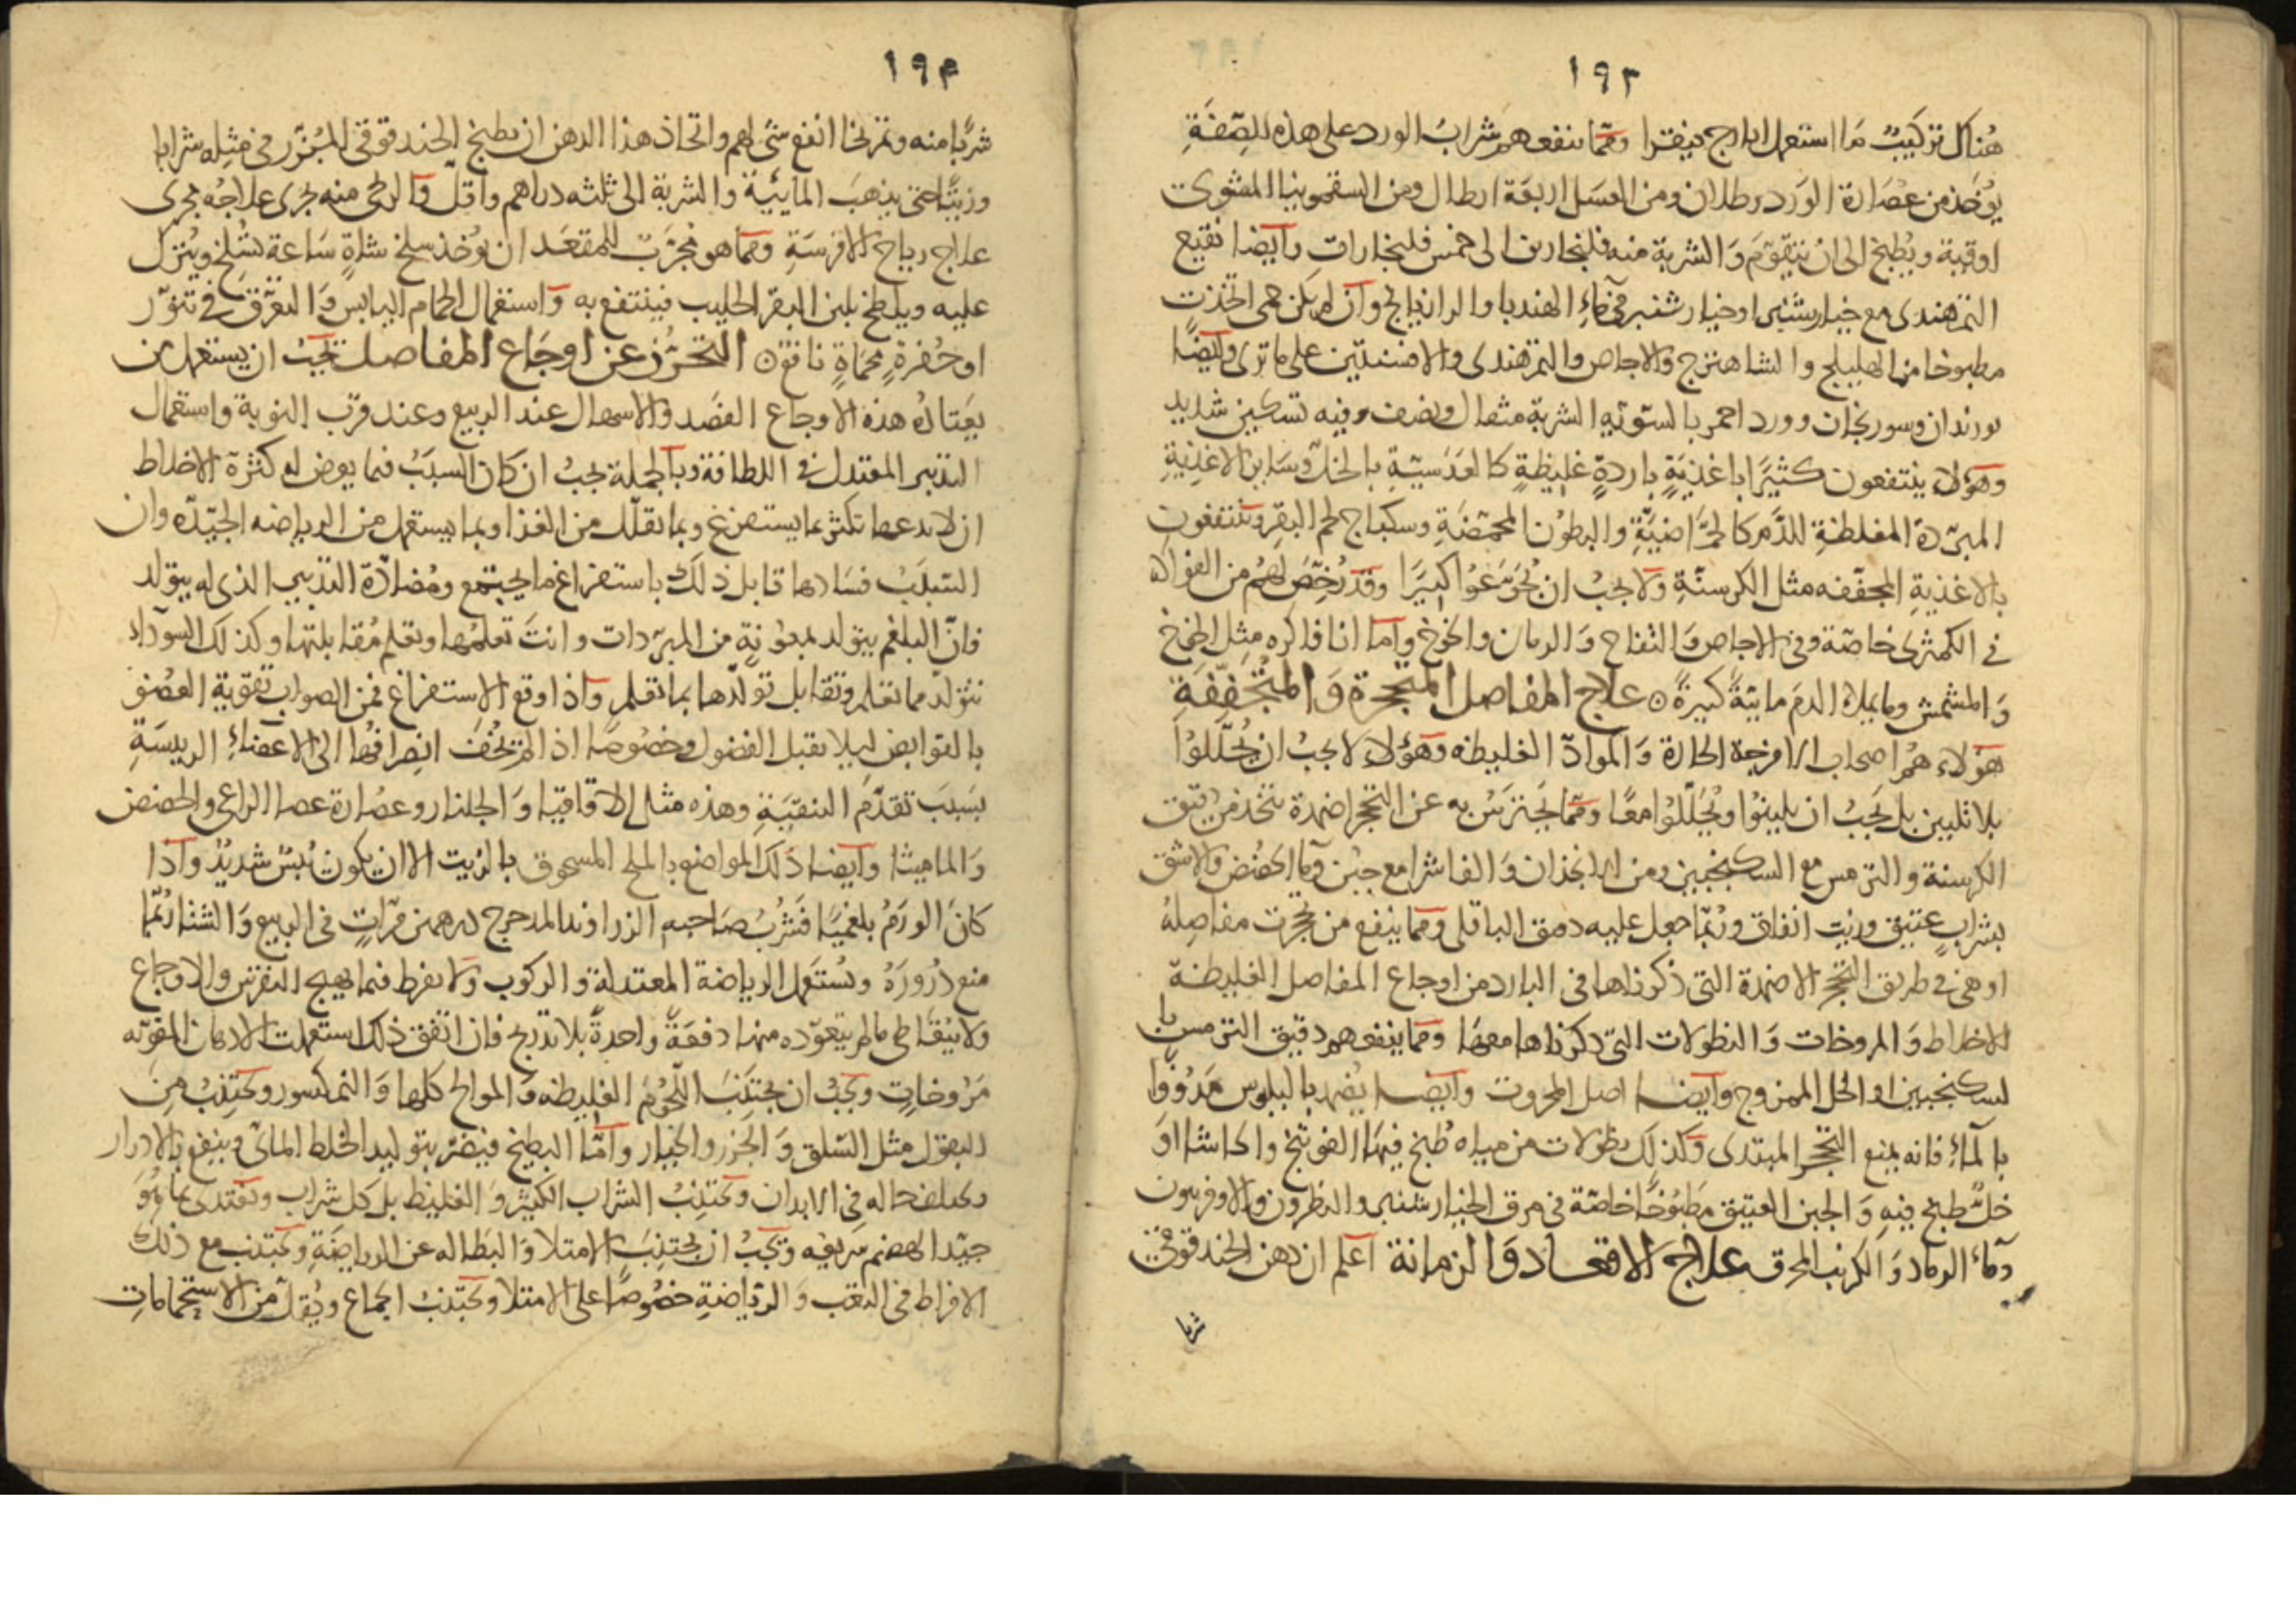 ١٩٣
هُناك تركيبٌ مّا استعمل ايارج فيقرا وممّا ينفعهم شرابُ الورد على هذه الصِّفَةِ
يُؤخَذ من عُصَارة الوَرد رطلان ومن العسَل اربعَة ارطال ومن السقمونيا المشوى
اوقية ويُطبخ الى انْ يتقوّمَ وَالشربة منه فلنجارين الى خمس فلنجارات وايضا نقيع
التمرهندى مع خيارشنبر او خيارشنبر فى مَاءِ الهندبا والرازيانج وان لم يكن حمى اتخذت
مطبوخا من الهليلج والشاهترج والاجاص والتمرهندى والافسنتين على ما ترى وايضًا
بوزندان وسورنجان وورد احمر بالسويّه الشربة مثقال ونصف وفيه تسكين شديد
وهؤلاء ينتفعون كثيرًا باغذيَةٍ باردةٍ غليظةٍ كالعدَسيّةِ بالخلّ وسَاير الاغذيةِ
المبرّدة المغلظةِ للدَّم كالحُمَّاضيَّةِ والبطوْن المحمّضَةِ وسكباج لحم البقر وينتفعون
بالاغذيةِ المجفّفه مثل الكرسنّةِ ولا يجبُ ان يُجَوَّعُوا كبيرًا وقد رُخّصَ لهُم من الفواكه
فى الكمثرى خاصّة وفى الاجاص والتفاح وَالرمان والخوخ وامّا انا فاكره مثل الخوخ
وَالمشمش وما يملاء الدمَ مائيّةً كبيرةً ه علاج المفاصل المتحجّرة وَالمتجفّفَةِ
هؤلاء هُمْ اصحاب الامزجة الحارة وَالموادّ الغليظه وهؤلاء لا يجبُ ان يُحلَّلوُا
بلا تليين بل يجَبُ ان يلينوُا ويُحَلّلوُا معًا وممّا يحترسُ به عن التحجر اضمدة تتخذ من دقيق
الكرسنة والترمس مع السكنجبين ومن الانجذان وَالفاشرا مع جبْن وما الحمُّض والاشق
بشرابٍ عتيق وزيت انفاق وربّما جعل عليه دقيق الباقلى ومما ينفع من تحجّرت مفاصِلهُ
او هى فى طريق التحجّر الاضمدة التى ذكرناها فى البارد من اوجاع المفاصل الغليظة
الاخلاط وَالمروخات وَالنطولات التى ذكرناها معها ومما ينفعهم دقيق الترمس با
لسكنجبين او الخل الممزوج وايضا اصل المحروت وايضا يُضمد بالبلبوس مَدقوُقًا
بالمآءِ فانه يمنع التحجّر المبتدى وكذلك نطولات من مياه طُبخ فيها الفوتنج والحاشا اوَ
خلٌّ طبخ فيهِ وَالجبن العتيق مَطبُوخًا خاصّة فى مرق الخيارشنبر والنطرون والافربيون
وماء الرماد وَالكرنب المحرق علاج الاقعاد وَالزمانة اعلم ان دهن الحندقوقى
شربا
١٩٤
شربًا منه وتمرّيخا انفع شىء لهم واتخاذ هذا الدهن ان يطبخ الحندقوقى المُبزّر فى مثِله شرابا
وزيتًا حتى يذهبَ المائيّة والشربة الى ثلثه دراهم واقلّ والريحى منه يجرى علاجُهُ مجرى
علاج رياح الافرسَةِ ومما هو مجرَّبٌ للمقعَد ان يُؤخذ سلخ شاةٍ سَاعة تسُلخ ويُنزل
عليه ويلطخ بلبن البقر الحليب فينتفع به واستعمال الحمام اليابس وَالتعرّق فى تنوّر
او حُفرةٍ محماةٍ نافع ه التحرُّز عن اوجَاع المفاصل يجبُ ان يستعمل من
يعَتادُه هذه الاوجاع الفصَد والاسهال عند الربيع وعند قرب النوبة واستعمال
التدبير المعتدل فى اللطافة وبالجملة يجبُ ان كان السبَبُ فيما يعرض له كثرة الاخلاط
ان لا يدعها تكثر بما يستفرغ وبما يقلّل من الغذا وبما يستعمل من الرياضه الجيّده وان
السَّببُ فسَادها قابل ذلك باستفراغ ما يجتمع ومُضادّة التدبير الذى له يتولد
فانّ البلغم يتولد بمعوْنةٍ من المبرّدات وانتَ تعلمها وتعلم مُقابلتها وكذلك السوداء
تتولدّ مما تعلم وتقابل تولّدها بما تعلم واذا وقع الاستفراغ فمن الصواب تقوية العُضو
بالقوابض ليلا يقبل الفضول وخصُوصًا اذا لم يُخفَ انصرافها الى الاعضاءِ الرييسَةِ
بسَببَ تقدّمَ التنقيَةِ وهذه مثل الاقاقيا وَالجلنار وعصُارة عصا الراعى والحضض
وَالماميثا وايضا دَلك المواضع بالملح المسحوق بالزيت الا ان يكون يُبسٌ شديدٌ واذا
كانَ الورَمُ بلغميًّا فشُربُ صَاحبهِ الزراوند المدحرج درهمين مرّاتٍ فى الربيع وَالشتا ربّما
منع دُرورَهُ ويُستعمَل الرياضة المعتدلة والركوب ولا يفرط فيما يهيج النقرس والاوجاع
ولا يتعَاطى ما لم يتعوّده منها دفعَةً واحدةً بلا تدريج فان اتفق ذلك استعملت الادهان المقويّه
مَرُوخاتٍ ويجبُ ان يجتَنبَ اللّحُومَ الغليظه وَالموالح كلها وَالنمكسود ويجتنبُ من
البقول مثل السّلق وَالجزر والخيار وامّا البطيخ فيضرّ بتوليد الخلط المائى وينفع بالادرار
ويختلف حاله فى الابدان ويجتنبُ الشراب الكثير وَالغليظ بل كل شراب ويغتدى بما هُوَ
جيّد الهضم سَريعه ويجبُ ان يجتنبَ الامتلا وَالبَطاله عن الرياضَةِ ويجتنب مع ذلك
الافراط فى التعَب وَالرّياضةِ خصُوصًا على الامتلا ويجتنبُ الجماع ويُقلّ من الاستحماماتِ